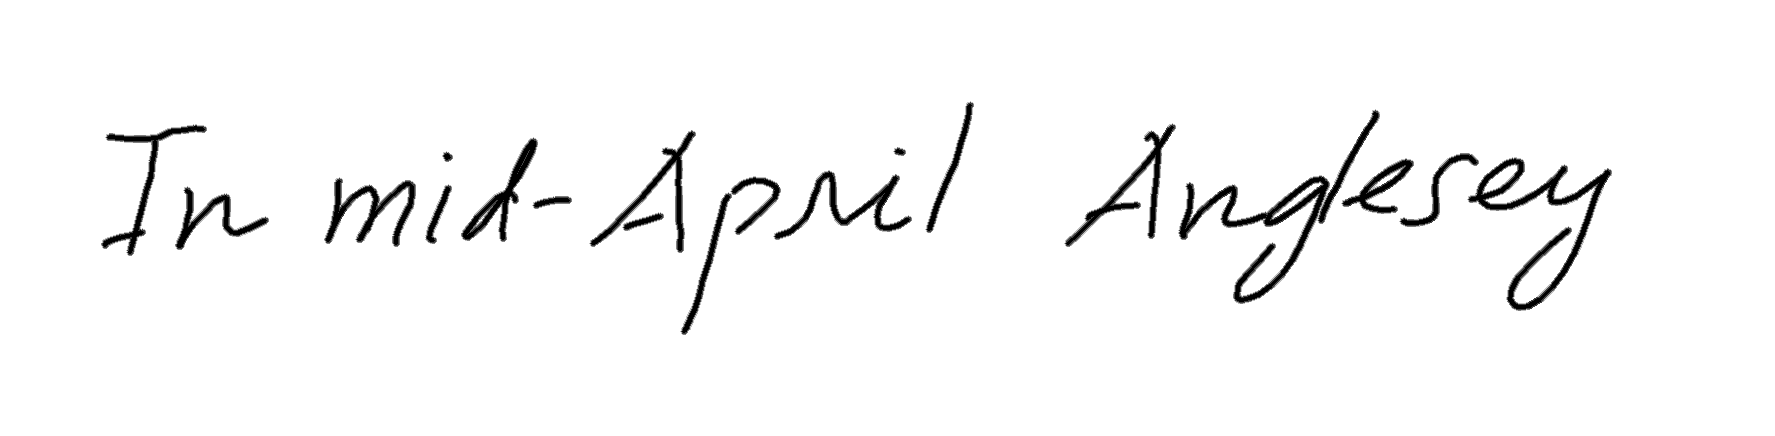 In mid-April Anglesey